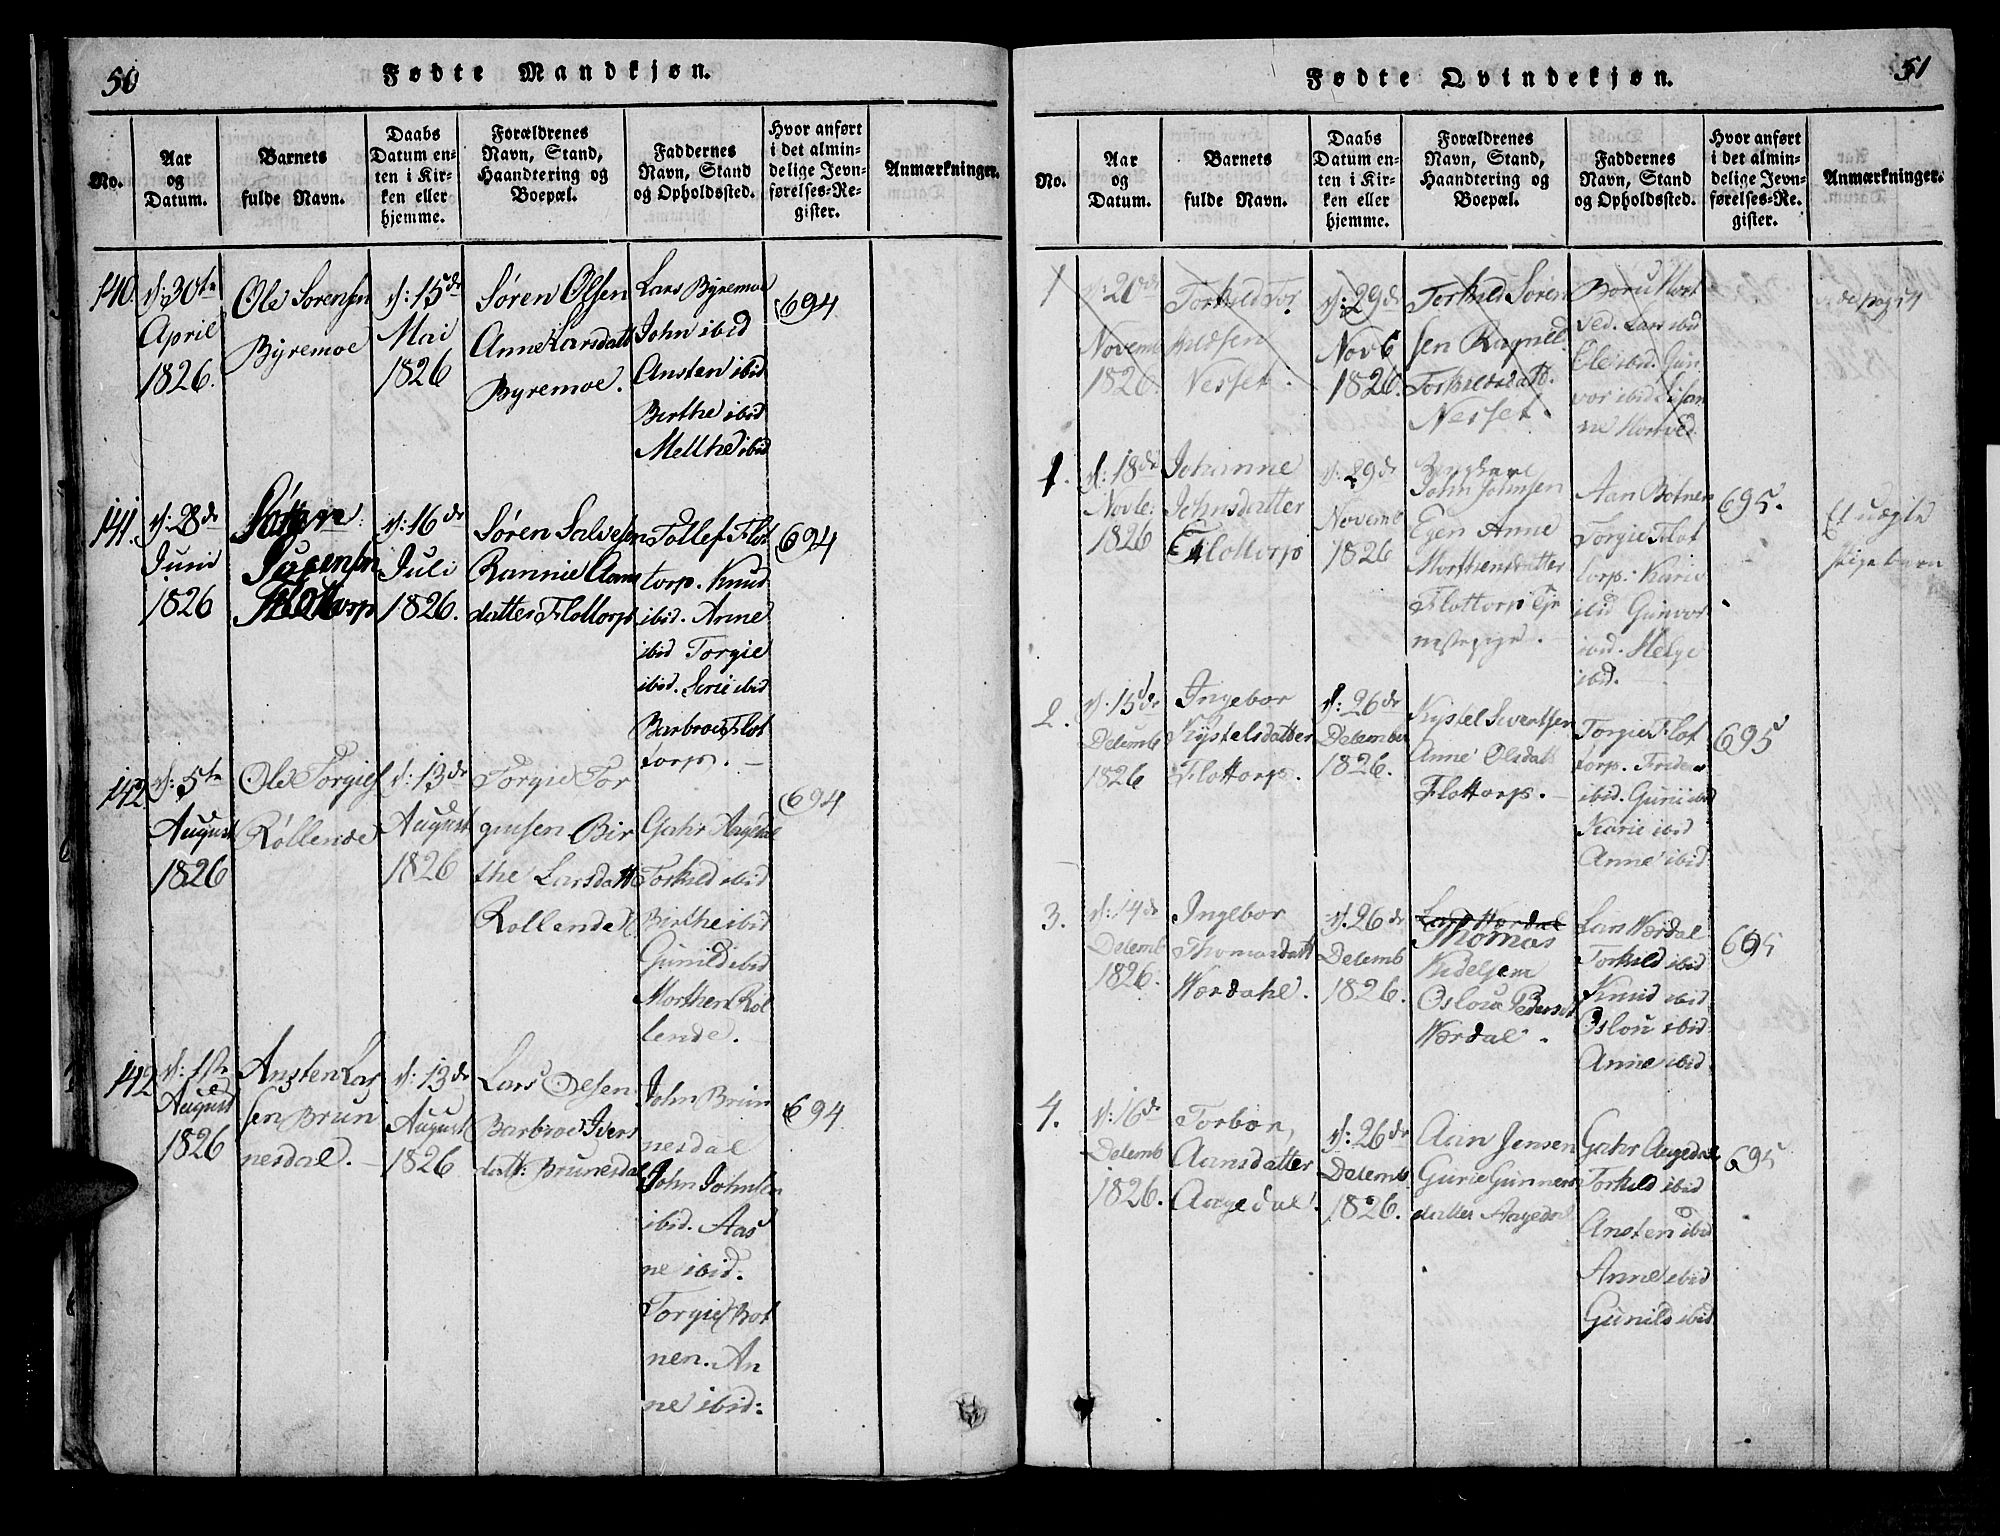 50
Fødte Mandkjøn.
No.
Aar
og
Datum.
Barnets
fulde Navn.
Daabs
Datum en-
ten i Kir-
ken eller
hjemme.
Forældrenes
Navn, Stand,
Haandtering og
Boepæl.
Faddernes
Navn, Stand
og Opholdssted.
Hvor anført
i det almin-
delige Jevn-
førelses-Re-
gister.
Anmærkninger.
140.
d: 30te
April
1826.
Ole Sørensen
Byremoe
d: 15de
Mai
1826
Søren Olsen
Anne Larsdatt
Byremoe.
Lars Byremoe
John ibid
Ansten ibid
Birthe ibid
Melthe ibid
694
141.
d: 28de
Juni
1826
Flottorp
d: 16de
Juli
1826.
Søren Salvesen
Rannie Aans
datter Flottorp
Tollef Flot
torp. Knud
ibid. Anne
ibid Torgie
ibid. Serie ibid
Barbroe Flot
torp. —
694
142.
d: 5te
August
1826
Ole Torgies
Røllende
d: 13de
August
1826
Torgie Tor
giusen Bir
the Larsdatt
Rollende
Gahr Aagedal
Torkild ibid
Birthe ibid
Gunild ibid
Morthen Rol
lende. —
694
142
d: 1ste
August
1826
Ansten Lar
sen Brun
nesdal. —
d: 13de
August
1826
Lars Olesen
Barbroe Ivers
datt: Brunesdal
John Brun
nesdal
John Johnsen
ibid. Aas
ne ibid.
Torgie Bot
nen. An
ne ibid:
694
51
Fødte Qvindekjøn.
No.
Aar
og
Datum.
Barnets
fulde Navn.
Daabs
Datum en-
ten i Kir-
ken eller
hjemme.
Forældrenes
Navn, Stand,
Haandtering og
Boepæl.
Faddernes
Navn, Stand
og Opholdssted.
Hvor anført
i det almin-
delige Jevn-
førelses-Re-
gister.
Anmærkninger.
1
d: 20de
Novemb
1826
Torkild Tor
kildsen
Nesset.
d: 29de
Novb
1826.
Torkild Søren
sen Ragnild
Torkildsdatt.
Nesset.
ved. Lars ibid
Ole ibid. Gun
vor ibid Susan
ne Homved
1.
d: 18de
Novbe:
1826
Johanne
Johnsdatter
Flottorp
d: 29de
Novemb
1826
Ungkarl
John Johnsen
Egen Anne
Morthensdatter
Flottorp Tje
nestepige. —
Aan Botnen
Torgie Flot
torp. Karie
ibid Gunvor
ibid. Helge
ibid. —
695.
Et uægte
pigebarn
2.
d: 15de
Decemb
1826
Ingebor
Kystelsdatter
Flottorp.
d: 26de
December
1826.
Kystel Sivertsen
Anne Olsdatt
Flottorp. —
Torgie Flot
torp. Fride
ibid. Gurii ibid
Karie ibid
Anne ibid
695
3.
d: 14de
Decemb
1826.
Ingebor
Thomasdatt
Wordahl.
d. 26de
Decemb
1826.
Lars Wordal
Thomas
Kidelsen
Oslou Pedersdt
Wordal.
Lars Wordal
Torkild ibid
Knud ibid
Oslou ibid
Anne ibid
695
4.
d: 16de
Decemb
1826.
Torbor
Aansdatter
Aagedal.
d: 26de
Decemb
1826.
Aan Jensen
Gurie Gunners
datter Aagedal
Gahr Aagedal
Torkild ibid
Ansten ibid
Anne ibid
Gunild ibid
695